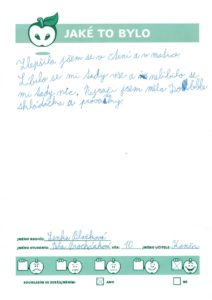 JAKÉ TO BYLO
Zlepšila jsem se v čtení a v matice
Líbilo se mi tady vše a nelíbilo se
mi tady nic. Nejraději jsem měla
skládačka a provázky.
JMÉNO RODIČŮ: Lenka
JMÉNO STUDENTA: VĚK: 10 JMÉNO UČITELE:
SOUHLASÍM SE ZVEŘEJNĚNÍM: ANO NE